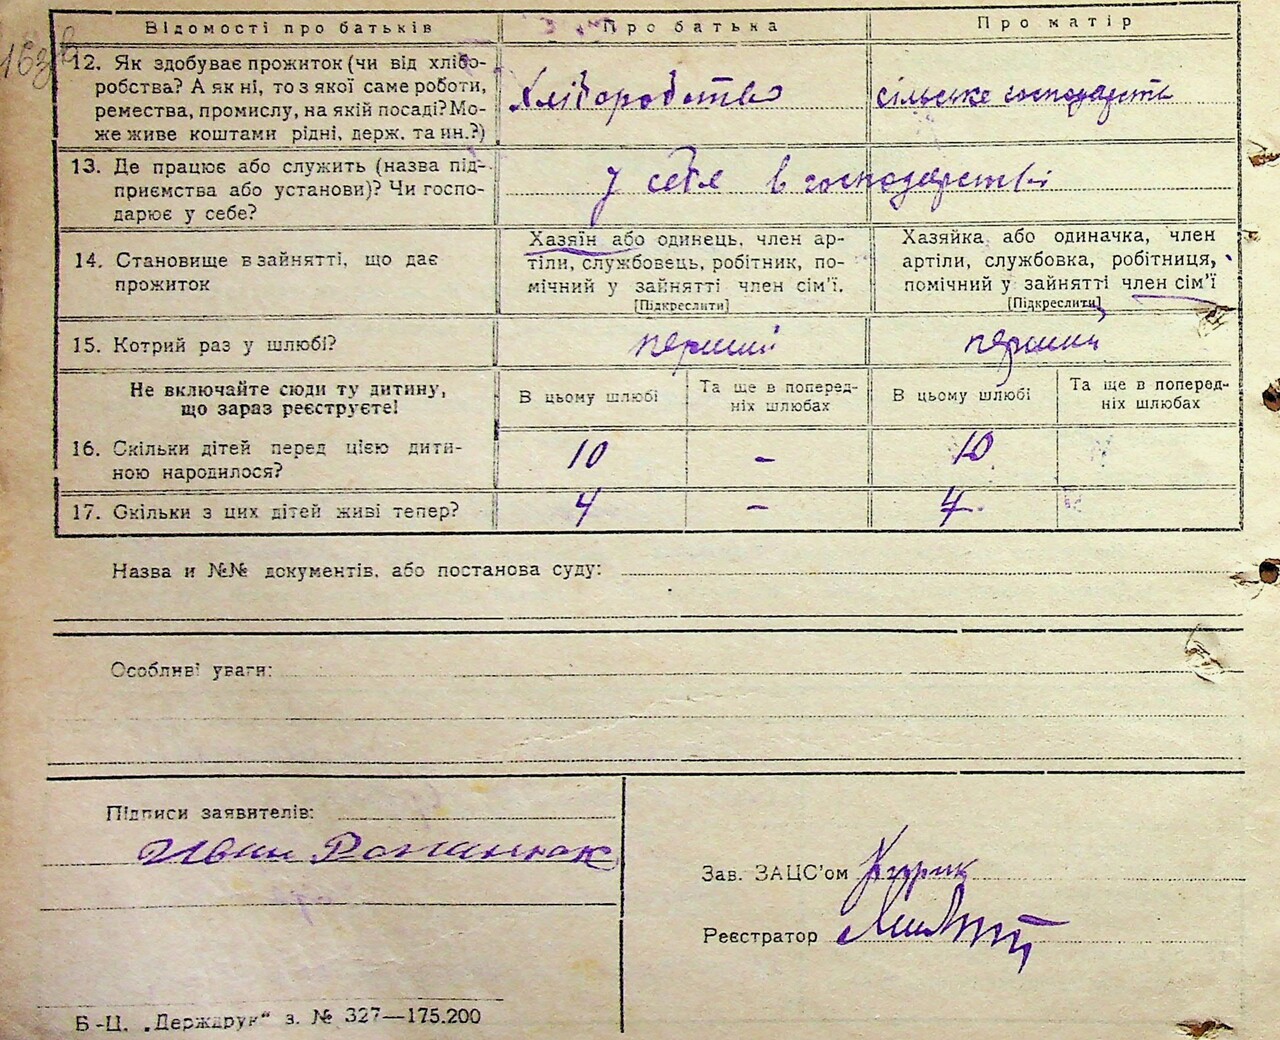 163 в
Відомості про батьків Про батька Про матір
12. Як здобуває прожиток (чи від хлібо-
робства? А як ні, то з якої саме роботи,
ремества, промислу, на якій посаді? Мо-
же живе коштами рідні, держ. та ин.?)
Хліборобство сільське господарств
13. Де працює або служить (назва під-
приємства або установи)? Чи госпо-
дарює у себе?
у себе в господарстві
14. Становище в зайнятті, що дає
прожиток
Хазяїн або одинець, член ар-
тіли, службовець, робітник, по-
мічний у зайнятті член сім'ї.
[Підкреслити]
Хазяйка або одиначка, член
артіли, службовка, робітниця,
помічний у зайнятті член сім'ї
[Підкреслити]
15. Котрий раз у шлюбі? перший перший
Не включайте сюди ту дитину,
що зараз реєструєте!
В цьому шлюбі
Та ще в поперед-
ніх шлюбах
В цьому шлюбі
Та ще в поперед-
ніх шлюбах
16. Скільки дітей перед цією дити-
ною народилося?
10 - 10
17. Скільки з цих дітей живі тепер? 4 - 4
Назва и №№ документів, або постанова суду:
Особливі уваги:
Підписи заявителів:
Иван Романюк
Зав. ЗАЦС'ом
Реєстратор
Б-Ц. „Держдрук“ з. № 327—175.200